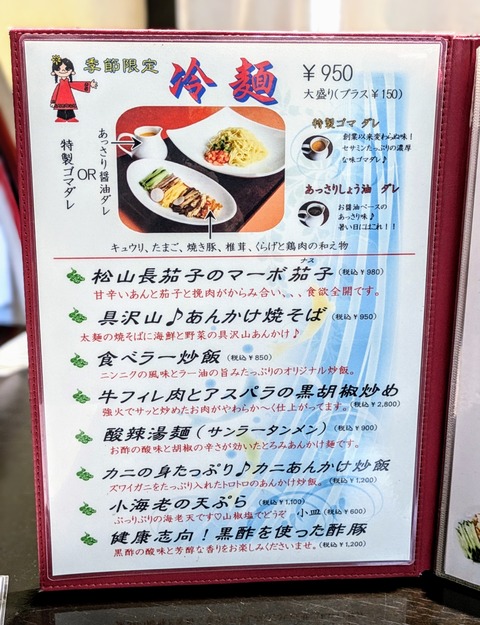 季節限定
冷麺
￥950
大盛り(プラス￥150)
特製ゴマダレ
OR
あっさり醤油ダレ
特製ゴマ ダレ
創業以来変わらぬ味！
セサミンたっぷりの濃厚
な味ゴマダレ♪
あっさりしょう油 ダレ
お醤油ベースの
あっさり味♪
暑い日にはこれ！！
キュウリ、たまご、焼き豚、椎茸、くらげと鶏肉の和え物
松山長茄子のマーボ茄子(税込￥980)
ナス
甘辛いあんと茄子と挽肉がからみ合い、、、食欲全開です。
具沢山♪あんかけ焼そば(税込￥950)
太麺の焼そばに海鮮と野菜の具沢山あんかけ♪
食べラー炒飯(税込￥850)
ニンニクの風味とラー油の旨みたっぷりのオリジナル炒飯。
牛フィレ肉とアスパラの黒胡椒炒め
強火でサッと炒めたお肉がやわらか～く仕上がってます。(税込￥2,800)
酸辣湯麺(サンラータンメン)(税込￥900)
お酢の酸味と胡椒の辛さが効いたとろみあんかけ麺です。
カニの身たっぷり♪カニあんかけ炒飯
ズワイガニをたっぷり入れたトロトロのあんかけ炒飯。(税込￥1,200)
小海老の天ぷら(税込￥1,100)
ぷっりぷりの海老天です♡山椒塩でどうぞ 小皿(税込￥600)
健康志向！黒酢を使った酢豚
黒酢の酸味と芳醇な香りをお楽しみくださいませ。(税込￥1,200)